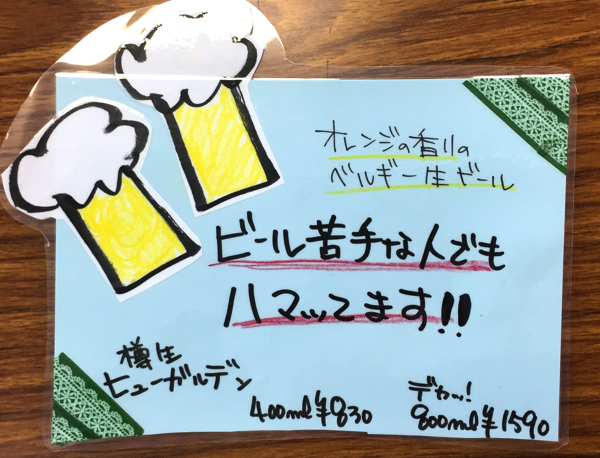 オレンジの香りの
ベルギー生ビール
ビール苦手な人でも
ハマッてます!!
樽生
ヒューガルデン
400ml ¥830
デカッ!
800ml ¥1590